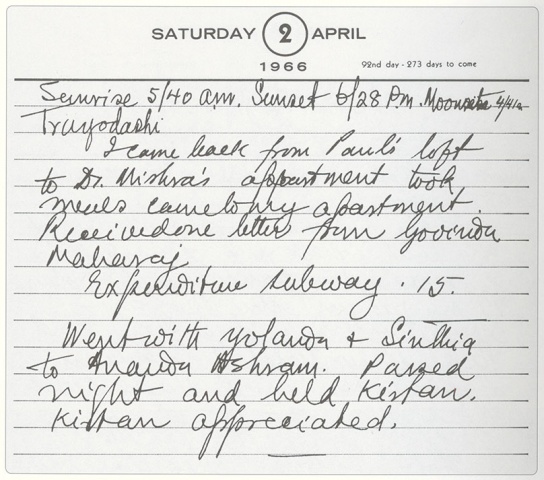 SATURDAY 2 APRIL
1966
92nd day - 273 days to come
Sunrise 5/40 a.m. Sunset 6/28 P.m. Moonrise 4/41a
Trayodashi
I came back from Paul's loft
to Dr. Mishra's appartment took
meals came to my apartment.
Received one letter from Govinda
Maharaj
Expenditure subway .15.
Went with Yolanda & Sinthia
to Ananda Ashram. Passed
night and held Kirtan.
Kirtan appreciated.